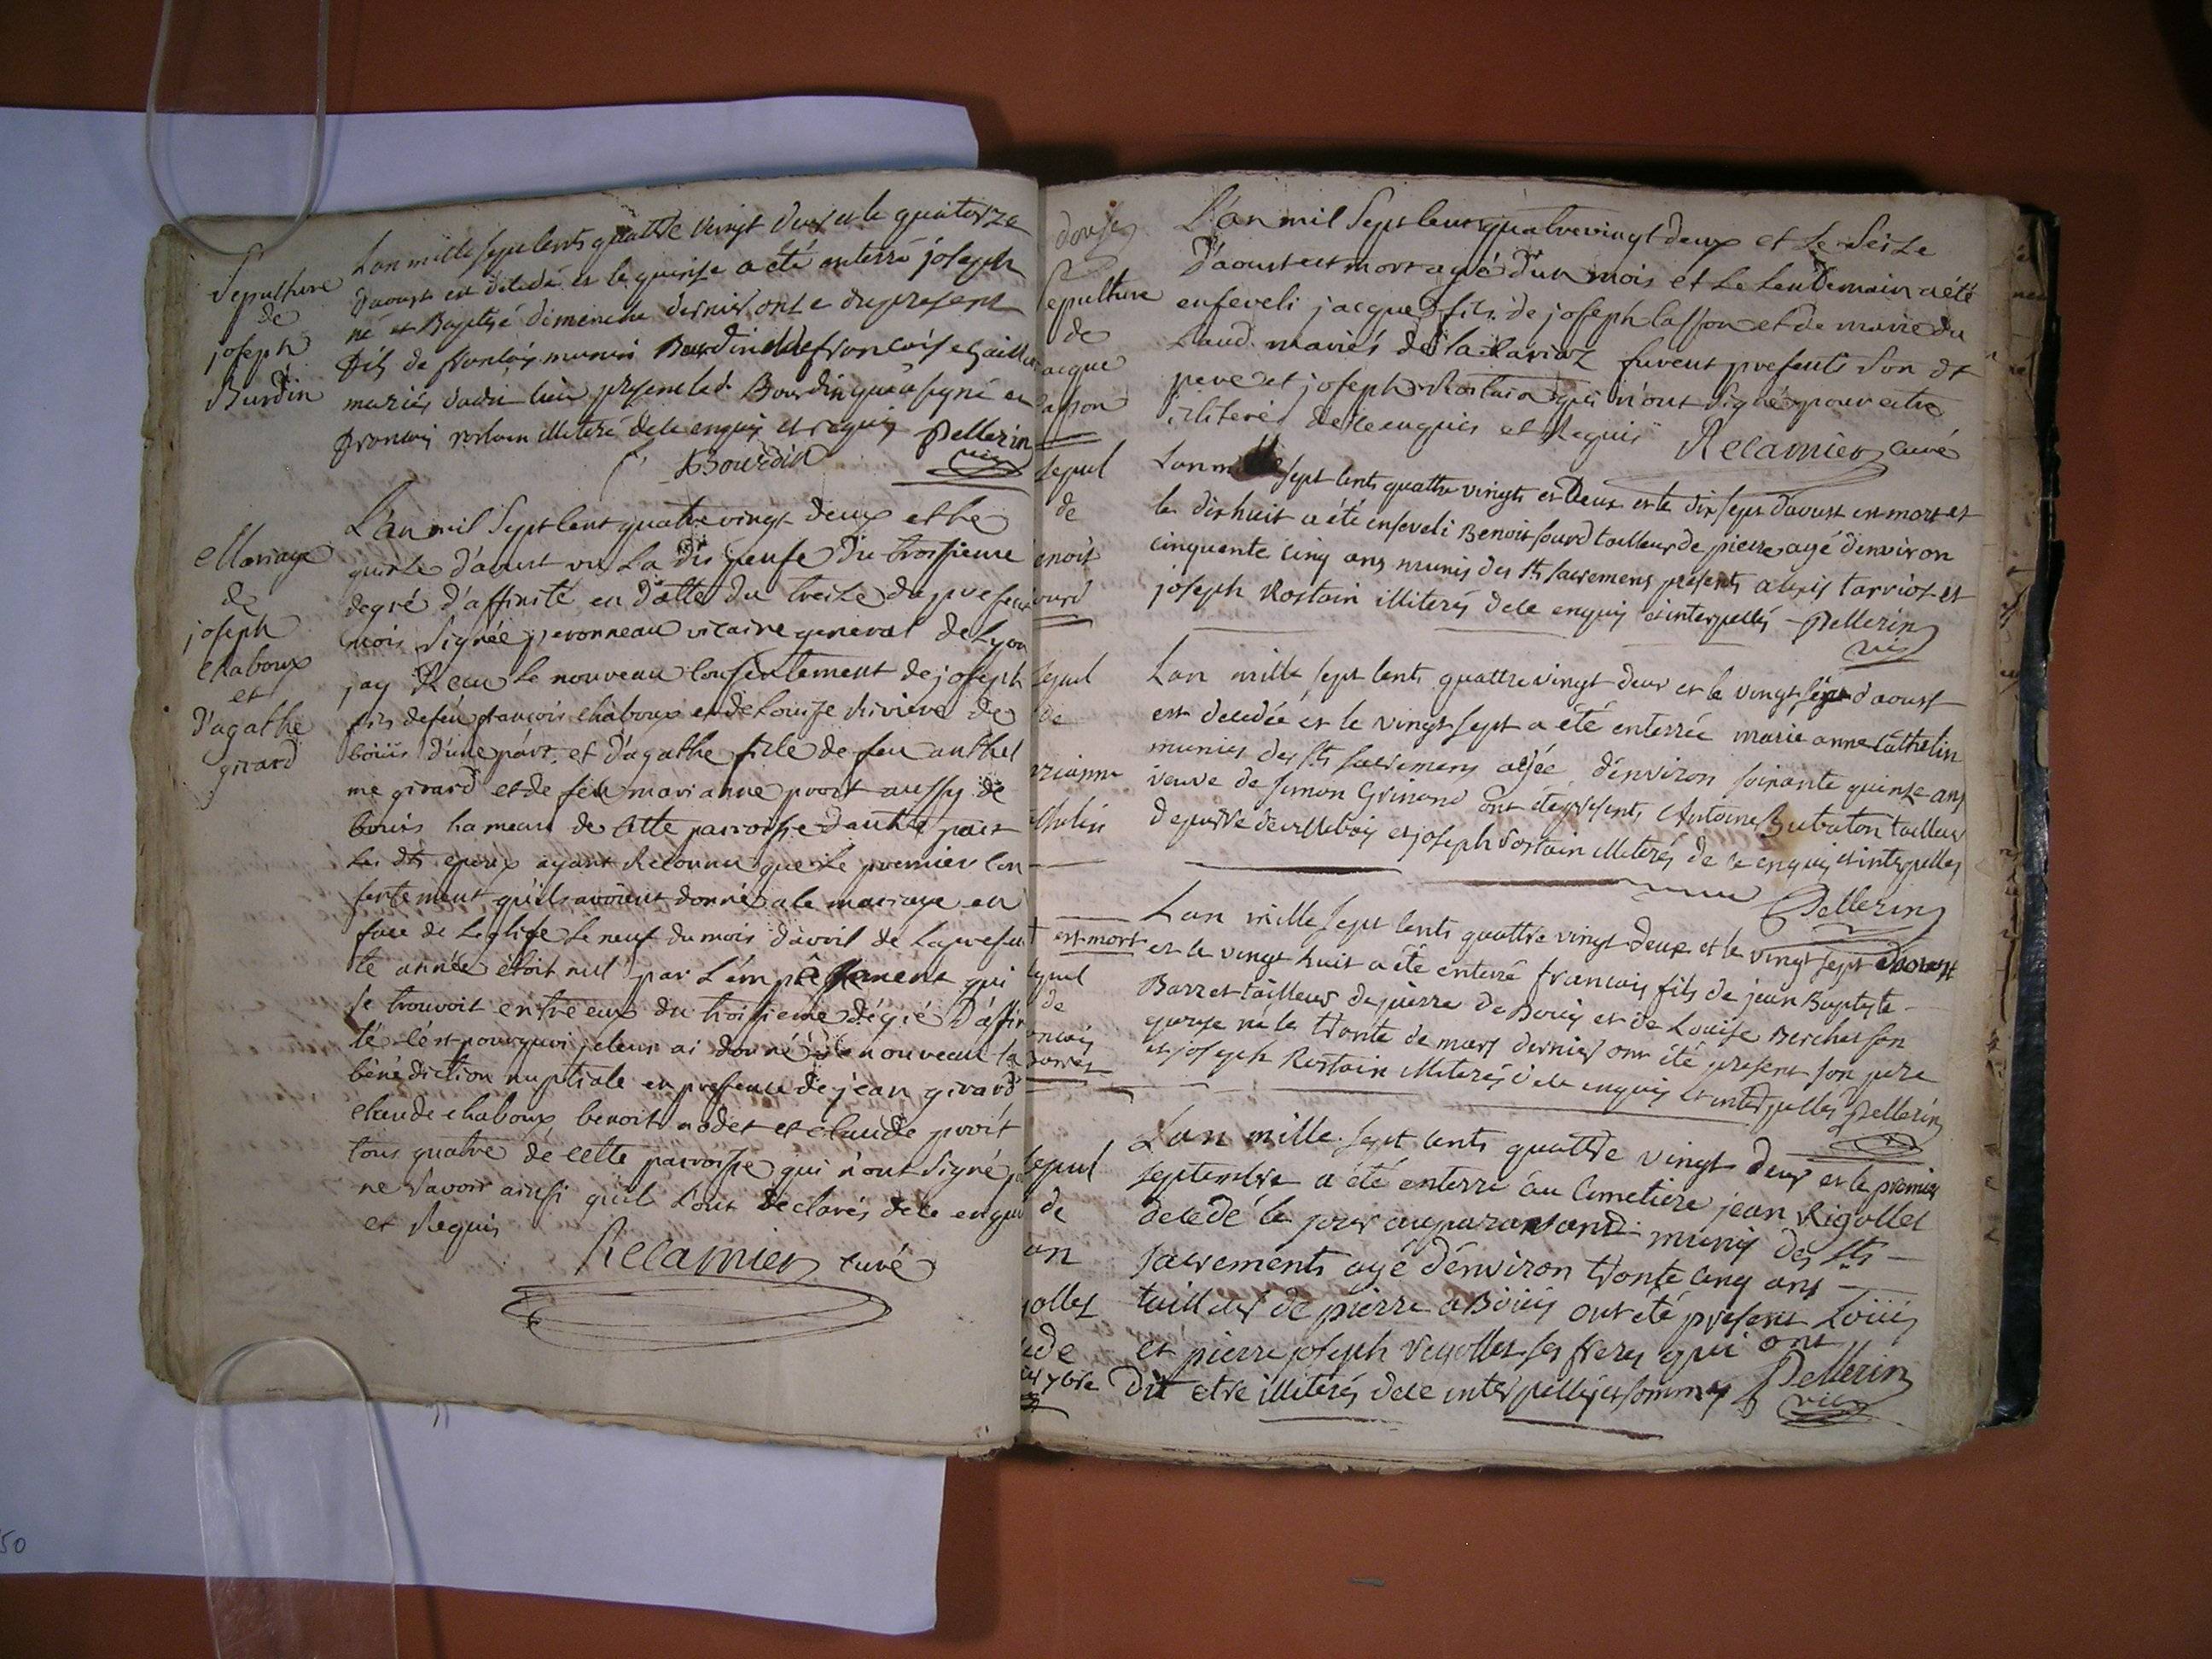 Sepulture
de
joseph
Burdin
L'an mille sept cents quattre vingt deux et le quatorze
d'aoust est decedé et le quinse a été enterré joseph
né et Baptisé dimenche dernier onze du present
fils de françois munin Bourdin et de francoise
mariés dudit lieu present led. Bourdin qui a signé et
francois rostain illiteré de ce enquis et requis Pellerin
Bourdin vic
Mariage
de
joseph
chaboux
et
d'agathe
girard
L'an mil Sept cent quatre vingt deux et le
quinze d'aoust vu La dispense du troisieme
degré d'affinité en datte du treize du present
mois signée peronneau vicaire general de Lyon
jay Recu le nouveau consentement de joseph
fils de feu françois chaboux et de Louise Riviere de
boüis d'une part, et d'agathe fille de feu anthel
me girard et de feu marianne proot aussy de
bouis hameau de cette parroisse d'autre part
Les dts epoux ayant Reconnu que le premier con
sentement qu'ils avoient donné a le mariage en
face de Leglise Le neuf du mois d'avril de La presen
te année étoit nul par L'émpêchement qui
se trouvoit entre eux du troisieme dégré d'affin
té c'est pourquoi je leur ai donné de nouveau la
bénédiction nuptiale en presence de jean girard
claude chaboux benoit nodet et claude proot
tous quatre de cette parroisse qui n'ont signé p
ne savoir ainsi qu'il l'ont declarés de ce enqui
et Requis
Recamier curé
douse
Sepulture
de
acque
asson
L'an mil Sept cent quatre vingt deux et Le Seize
d'aoust est mort agé d'un mois et Le Lendemain a été
enseveli jacque fils de joseph lasson et de marie du
Laud mariés de la furent presents Son dt
pere et joseph Rostain qui n'ont signé pour etre
illiteré de ce enquis et Requis Recamier curé
sepul
de
enoit
ourd
L'an mille sept cents quattre vingts et Deux et le dix sept d'aoust est mort et
le dix huit a été enseveli Benoit sourd tailleur de pierre agé d'environ
cinquante cinq ans munis des sts sacremens presents alexis tarriot et
joseph Rostain illiterés de ce enquis et interpellés Pellerin
vic
sepul
de
rrianne
thelin
L'an mille sept cents quattre vingt deux et le vingt sept d'aoust
est decedée et le vingt sept a été enterrée marie anne Cathelin
munies des sts sacremens agée d'environ soixante quinze ans
veuve de simon Grinand ont été presents Antoine Bubaton tailleur
de pierre de villebois et joseph Rostain illiterés de ce enquis et interpellés
Pellerin
est mort
epul
de
ancois
Barret
L'an mille sept cents quattre vingt deux et le vingt sept d'aoust
et le vingt huit a été enterré francois fils de jean Baptiste
Barret tailleur de pierre de Bouis et de Louise Berchet son
epouse né le trente de mars dernier ont été present son pere
et joseph Rostain illiterés de ce enquis et interpellés Pellerin
sepul
de
an
golles
ede
L'an mille sept cents quattre vingt deux et le premier
septembre a été enterré au Cimetiere jean Rigollet
decedé le jour auparavant munis des sts
sacrements agé d'environ trente cinq ans
tailleur de pierre a Boüis ont été present Loüis
et pierre joseph Rigollet ses freres qui ont
dit etre illiterés de ce interpellés et sommés Pellerin
vic
50